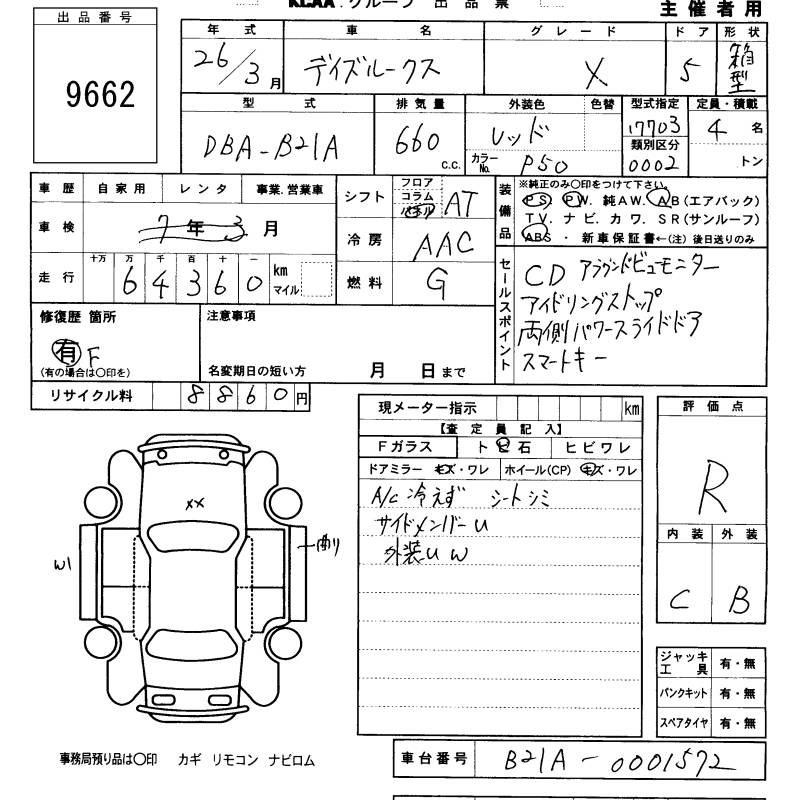 KCAA.グループ 出品票
主催者用
出品番号
9662
年式 車名 グレード ドア 形状
26/3月 デイズルークス X 5 箱型
型式 排気量 外装色 色替 型式指定 定員・積載
DBA-B21A 660 c.c. レッド 17703 4名
カラーNo. P50 類別区分 0002 トン
車歴 自家用 レンタ 事業.営業車
車検 7年3月
走行 十万 万 千 百 十 一
64360 km マイル
シフト フロア コラム パネル AT
冷房 AAC
燃料 G
装備品 ※純正のみ〇印をつけて下さい。
PS. PW. 純AW. AB(エアバック)
TV. ナビ. カワ. SR(サンルーフ)
ABS ・ 新車保証書←(注) 後日送りのみ
セールスポイント
CD アラウンドビューモニター
アイドリングストップ
両側パワースライドドア
スマートキー
修復歴 箇所
有 F
(有の場合は〇印を)
注意事項
名変期日の短い方 月 日まで
リサイクル料 8860円
現メーター指示 km
【査定員記入】
Fガラス ト ビ 石 ヒビワレ
ドアミラー キズ・ワレ ホイール(CP) キズ・ワレ
A/C 冷えず シートシミ
サイドメンバーU
外装U W
評価点
R
内装 外装
C B
XX
W1
曲り
ジャッキ工具 有・無
パンクキット 有・無
スペアタイヤ 有・無
事務局預り品は〇印 カギ リモコン ナビロム
車台番号 B21A-0001572